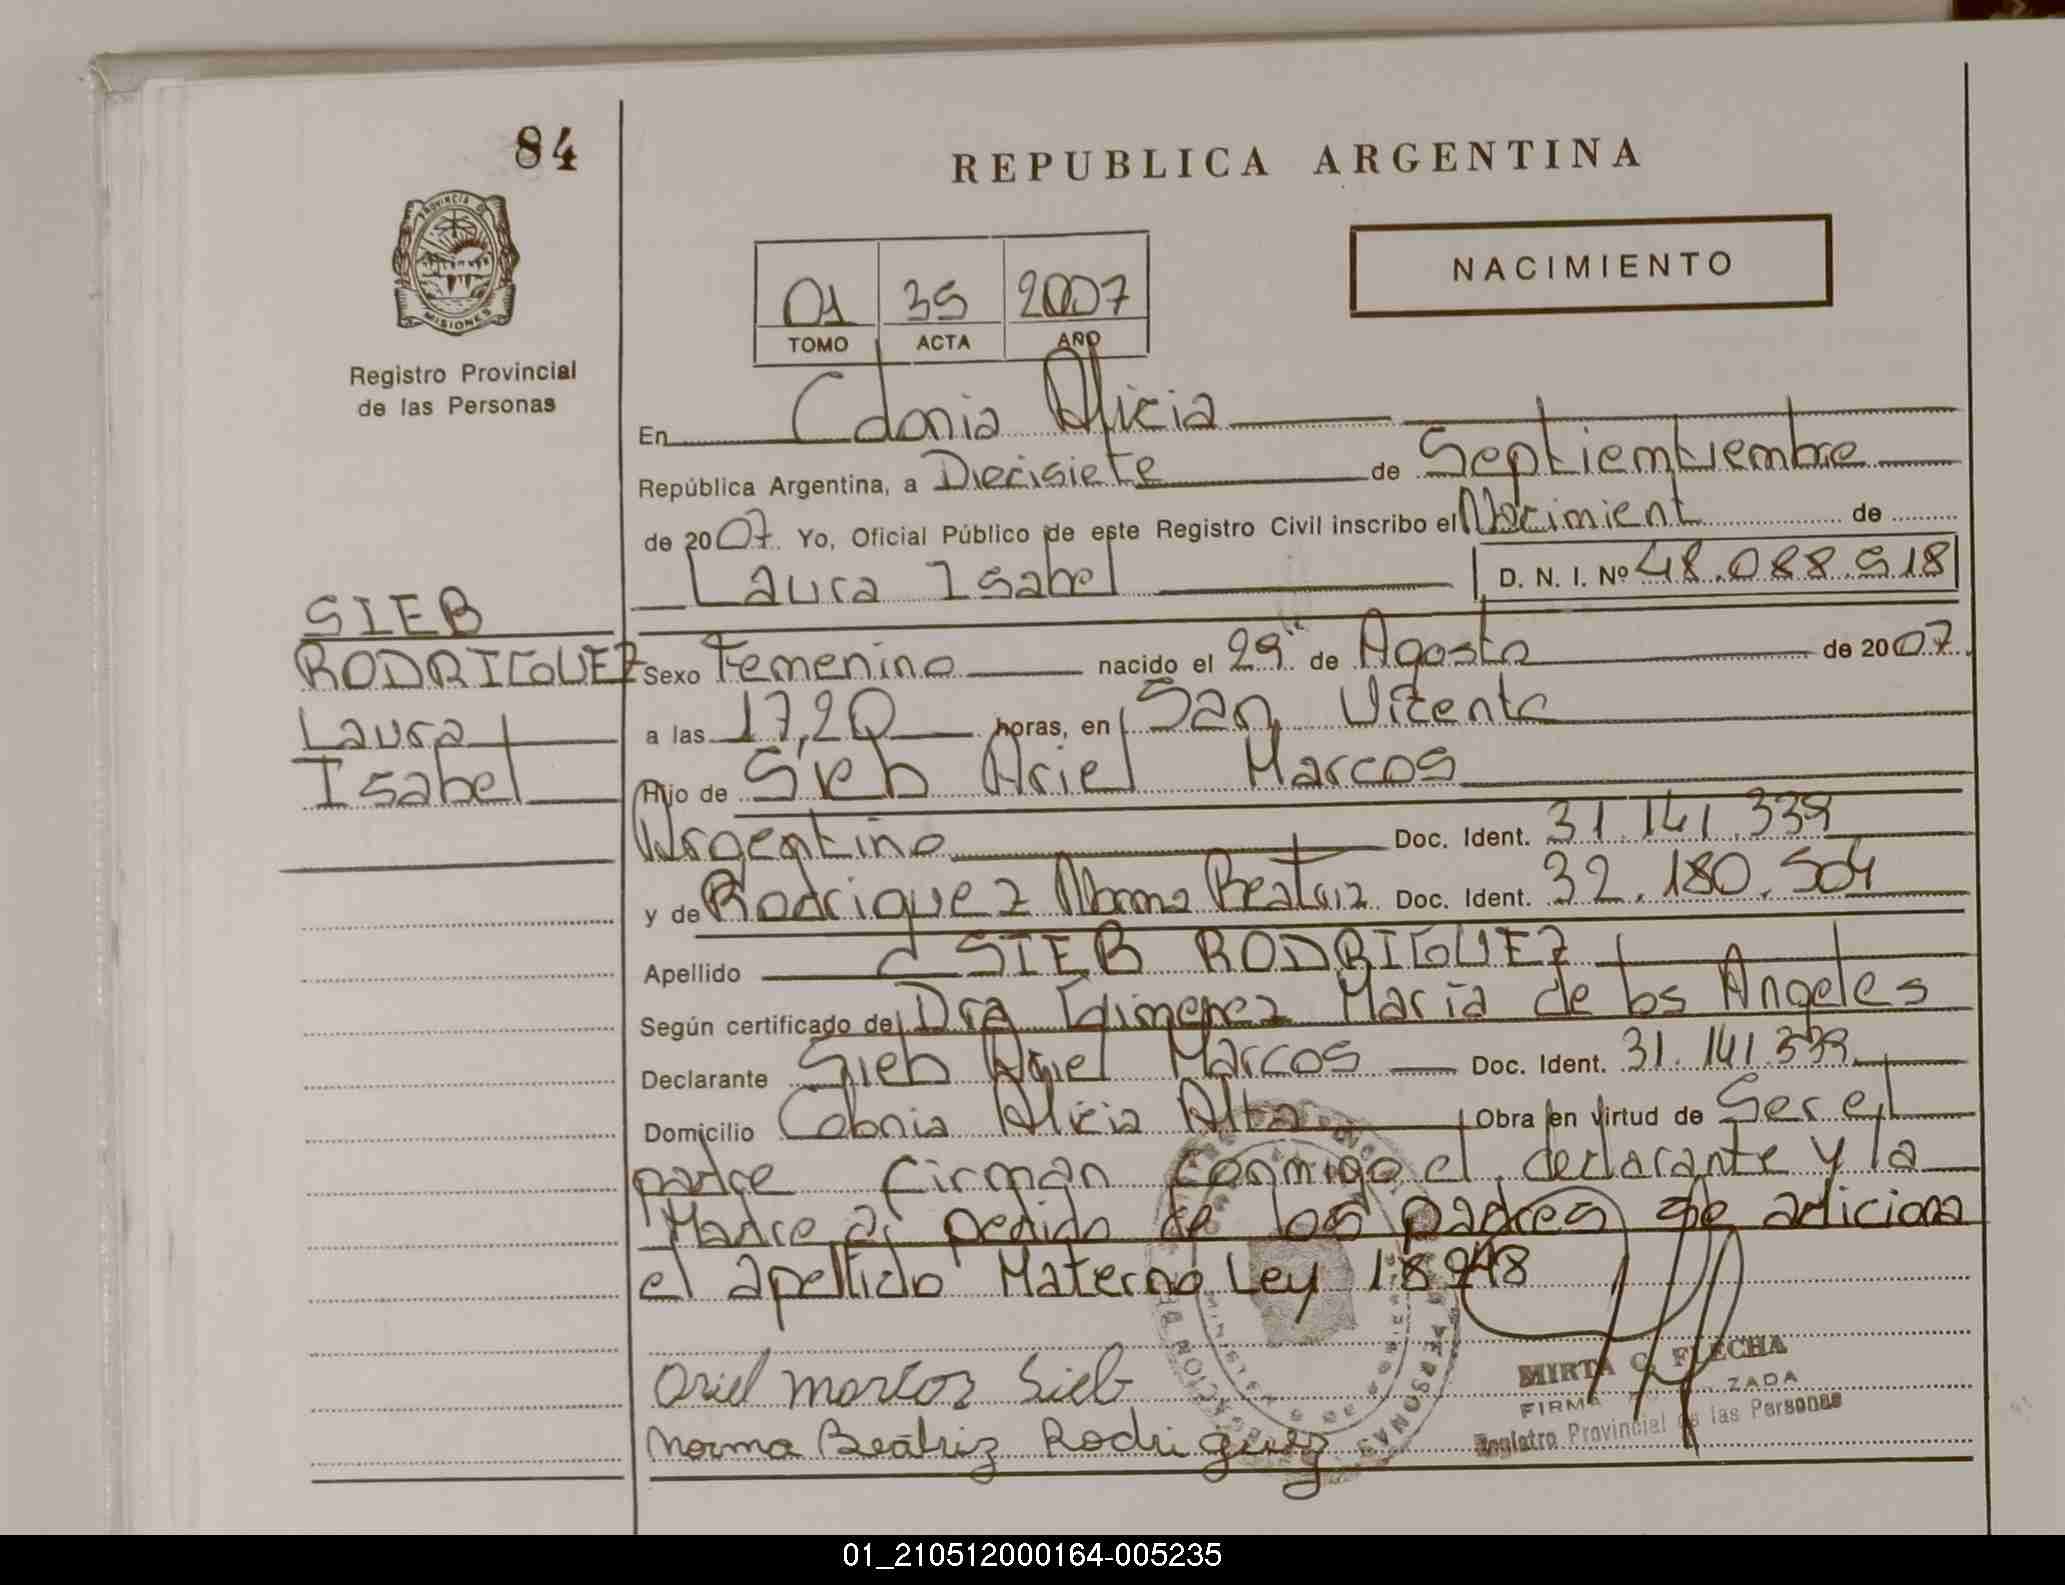 84
REPUBLICA ARGENTINA
PROVINCIA DE
MISIONES
NACIMIENTO
01 35 2007
TOMO ACTA AÑO
Registro Provincial
de las Personas
En Colonia Alicia
República Argentina, a Diecisiete de Septiemtiembre
de 2007. Yo, Oficial Público de este Registro Civil inscribo el Nacimient de
Laura Isabel D. N. I. Nº 48.088.918
SIEB
RODRIGUEZ
Laura
Isabel
Sexo Femenino nacido el 29 de Agosto de 2007.
a las 17,20 horas, en San Vicente
Hijo de Sieb Ariel Marcos
Argentino Doc. Ident. 31.141.339
y de Rodriguez Norma Beatriz Doc. Ident. 32.180.504
Apellido SIEB RODRIGUEZ
Según certificado de Dra Gimenez Maria de los Angeles
Declarante Sieb Ariel Marcos Doc. Ident. 31.141.339
Domicilio Colonia Alicia Alta Obra en virtud de Ser el
padre Firman conmigo el declarante y la
Madre a pedido de los padres se adiciona
el apellido Materno Ley 18248
Ariel marcos Sieb
Norma Beatriz Rodriguez
MIRTA C. FLECHA
FIRMA
Registro Provincial de las Personas
01_210512000164-005235